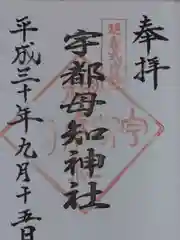 奉拝
宇都母知神社
平成三十年九月十五日